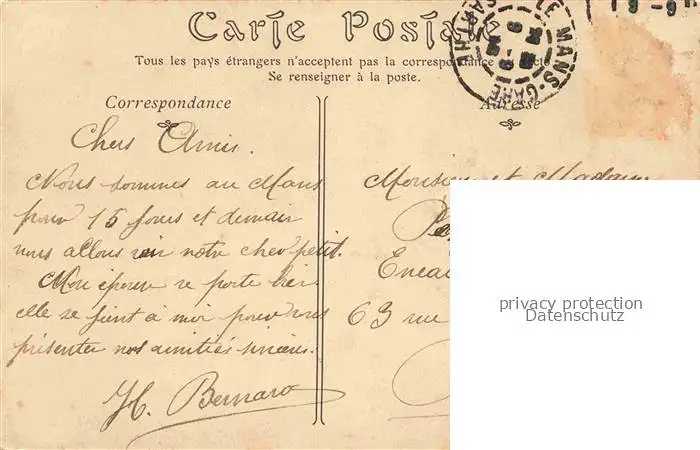 Carte Postale
Tous les pays étrangers n'acceptent pas la correspondance au recto
Se renseigner à la poste.
LE MANS-GARE
SARTHE
19-9
Correspondance
Adresse
Chers Amis.
Nous sommes au Mans
pour 15 jours et demain
nous allons voir notre cher petit.
Mon épouse se porte bien
elle se joint à moi pour vous
présenter nos amitiés sincères.
H. Bernard
Monsieur et Madame
Encai
63 rue
privacy protection
Datenschutz